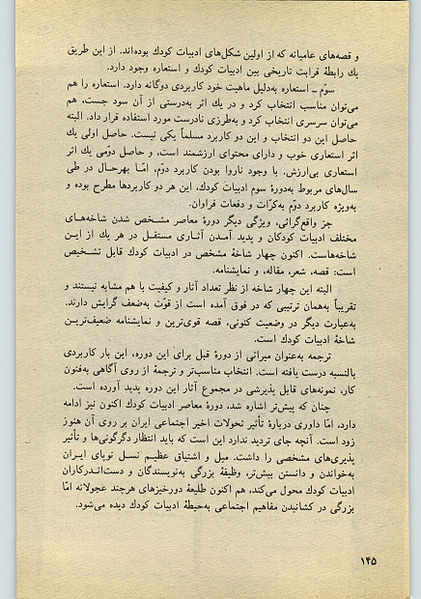 و قصه‌های عامیانه که از اولین شکل‌های ادبیات کودك بوده‌اند. از این طریق
یك رابطهٔ قرابت تاریخی بین ادبیات کودك و استعاره وجود دارد.
سوّم ــ استعاره به‌دلیل ماهیت خود کاربردی دوگانه دارد. استعاره را هم
می‌توان مناسب انتخاب کرد و در یك اثر به‌درستی از آن سود جست، هم
می‌توان سرسری انتخاب کرد و به‌طرزی نادرست مورد استفاده قرار داد. البته
حاصل این دو انتخاب و این دو کاربرد مسلماً یکی نیست. حاصل اولی یك
اثر استعاری خوب و دارای محتوای ارزشمند است، و حاصل دوّمی یك اثر
استعاری بی‌ارزش. با وجود ناروا بودن کاربرد دوّم، امّا بهرحال در طی
سال‌های مربوط به‌دورهٔ سوم ادبیات کودك، این هر دو کاربردها مطرح بوده و
به‌ویژه کاربرد دوّم به‌کرّات و دفعات فراوان.
جز واقع‌گرائی، ویژگی دیگر دورهٔ معاصر مشـخص شدن شاخه‌هـای
مختلف ادبیات کودکان و پدید آمـدن آثـاری مستقـل در هر یك از ایـن
شاخه‌هاست. اکنون چهار شاخهٔ مشخص در ادبیات کودك قابل تشـخیص
است: قصه، شعر، مقاله، و نمایشنامه.
البته این چهار شاخه از نظر تعداد آثار و کیفیت با هم مشابه نیستند و
تقریباً به‌همان ترتیبی که در فوق آمده است از قوّت به‌ضعف گرایش دارند.
به‌عبارت دیگر در وضعیت کنونی، قصه قوی‌ترین و نمایشنامه ضعیف‌تریـن
شاخهٔ ادبیات کودك است.
ترجمه به‌عنوان میراثی از دورهٔ قبل برای این دوره، این بار کاربردی
بالنسبه درست یافته است. انتخاب مناسب‌تر و ترجمهٔ از روی آگاهی به‌فنون
کار، نمونه‌های قابل پذیرشی در مجموع آثار این دوره پدید آورده است.
چنان که پیش‌تر اشاره شد، دورهٔ معاصر ادبیات کودك اکنون نیز ادامه
دارد، امّا داوری دربارهٔ تأثیر تحولات اخیر اجتماعی ایران بر روی آن هنوز
زود است. آنچه جای تردید ندارد این است که باید انتظار دگرگونی‌ها و تأثیر
پذیری‌های مشخصی را داشت. میل و اشتیاق عظیـم نسـل نوپای ایـران
به‌خواندن و دانستن بیش‌تر، وظیفهٔ بزرگی به‌نویسندگان و دسـت‌انـدرکاران
ادبیات کودك محول می‌کند، هم اکنون طلیعهٔ دورخیزهای هرچند عجولانه امّا
بزرگی در کشانیدن مفاهیم اجتماعی به‌حیطهٔ ادبیات کودك دیده می‌شود.
۱۴۵